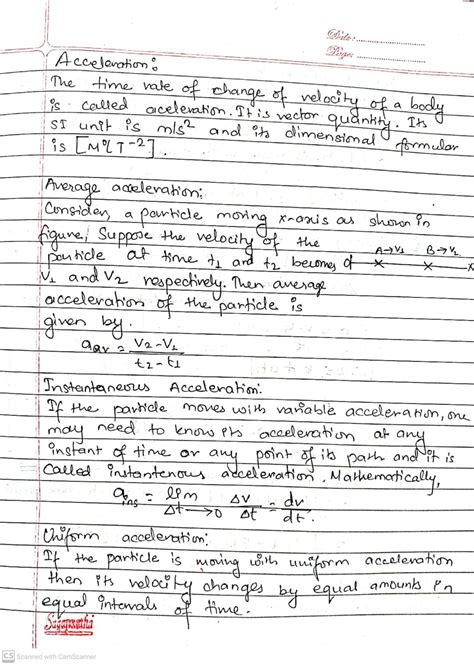 Date:..................
Page:..................
Acceleration:
The time rate of change of velocity of a body
is called aceleration. It is vector quantity. Its
SI unit is m/s² and its dimensional formular
is [M⁰LT⁻²].
Average acceleration:
Consider, a particle moving x-axis as shown in
figure, Suppose the velocity of the
particle at time t₁ and t₂ becomes of
A→V₁ B→V₂
O × ×
V₁ and V₂ respectively. Then average
acceleration of the particle is
given by.
aₐᵥ = V₂-V₁ / t₂-t₁
Instantaneous Acceleration:
If the particle moves with variable acceleration, one
may need to know its acceleration at any
instant of time or any point of its path and it is
Called instantenous acceleration. Mathematically,
a⃗ins = lim Δt→0 Δv/Δt = dv/dt.
Uniform acceleration:
If the particle is moving with uniform acceleration
then its velocity changes by equal amounts in
equal intervals of time.
CS Scanned with CamScanner